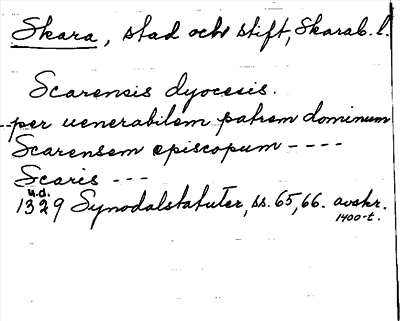 Skara, stad och stift, Skarab. l.
Scarensis dyocesis.
--per uenerabilem patrem dominum
Scarensem episcopum ----
Scaris ---
u.d.
1329 Synodalstatuter, ss. 65, 66. avskr.
1400-t.